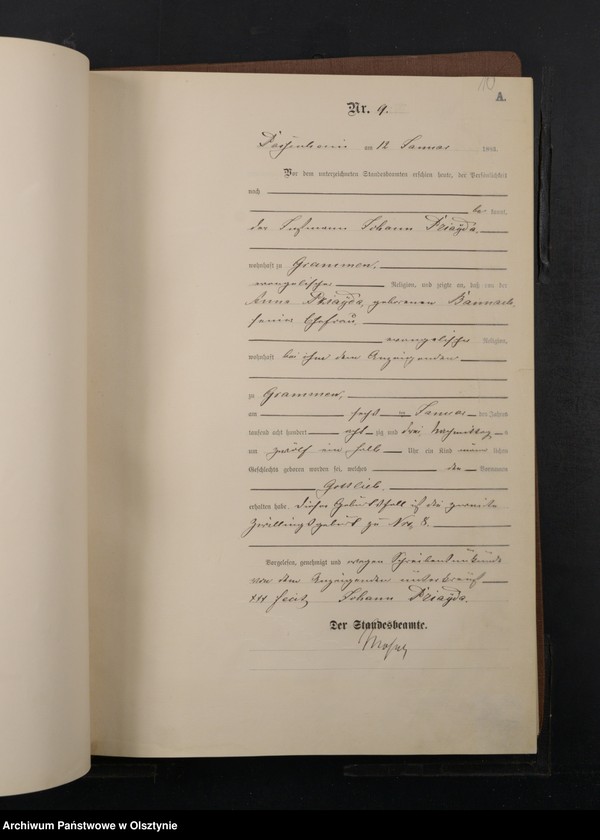 A.
Nr. 9.
am 12 Januar 188
Vor dem unterzeichneten Standesbeamten erschien heute, der Persönlichkeit
nach
be kannt,
der Johann
wohnhaft zu Grammen,
evangelischer Religion, und zeigte an, daß von der
Anna geborenen Bannach,
seiner Ehefrau,
evangelischer Religion,
wohnhaft bei ihm dem Anzeigenden
zu Grammen,
am sechs ten Januar des Jahres
tausend acht hundert acht zig und drei, Nachmittags
um zwölf ein halb Uhr ein Kind männ lichen
Geschlechts geboren worden sei, welches den Vornamen
Gottlieb
erhalten habe. Dieser Geburtsfall ist die zweite
Zwillingsgeburt zu Nro, 8.
Vorgelesen, genehmigt und wegen Schreibensunkunde
von dem Anzeigenden unterkreuzt
+++ fecit Johann
Der Standesbeamte.
Archiwum Państwowe w Olsztynie